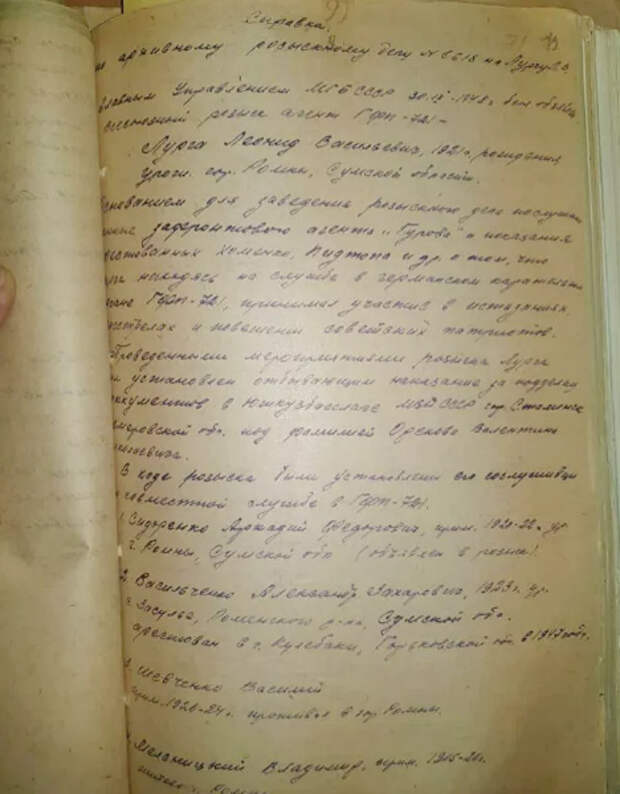 Справка
по архивному розыскному делу № 6615 на Лурга Л.В.
Главным Управлением МГБ СССР 30.IX-1948г был объявлен
розыск агент ГФП-721-
Лурга Леонид Васильевич, 1921 г. рождения
урож. гор. Ромны, Сумской области.
Основанием для заведения розыскного дела послужили
данные зафронтового агента „Гурова" и показания
арестованных Хоменко, и др. о том, что
Лурга находясь на службе в германском карательном
органе ГФП-721, принимал участие в истязаниях,
расстрелах и повешении советских патриотов.
Проведенными мероприятиями розыска Лурга
был установлен отбывающим наказание за подделку
документов в Южкузбасслаге МВД СССР гор. Сталинск
Кемеровской обл. под фамилией Орехова Валентина
В ходе розыска были установлены его сослуживцы
по совместной службе в ГФП-721.
1. Сидоренко Аркадий Федорович, прим. 1920-22 г. ур.
г. Ромны, Сумской обл. (объявлен в розыск).
2. Васильченко Александр Захарович, 1923 г. ур.
с. Засулье, Роменского р-на, Сумской обл.
арестован в г. Кулебаки, Горьковской обл. в 1947 году.
3. Шевченко Василий
прим. 1920-24 г. проживал в гор. Ромны.
4. Мельницкий Владимир, прим. 1915-20 г.